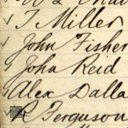 J Miller
John Fisher
John Reid
Alex Dalla
R Ferguson